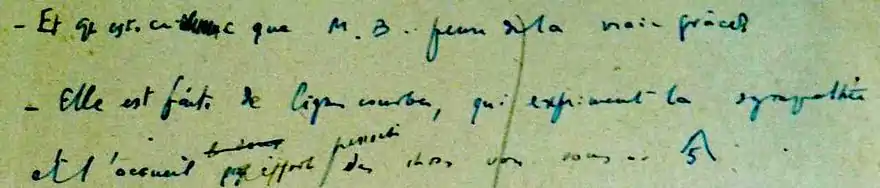 - Et qu'est-ce donc que M. B.. pense de la vraie grâce?
- Elle est faite de lignes courbes, qui expriment la sympathie
et l'accueil effort des choses vers nous .. 5